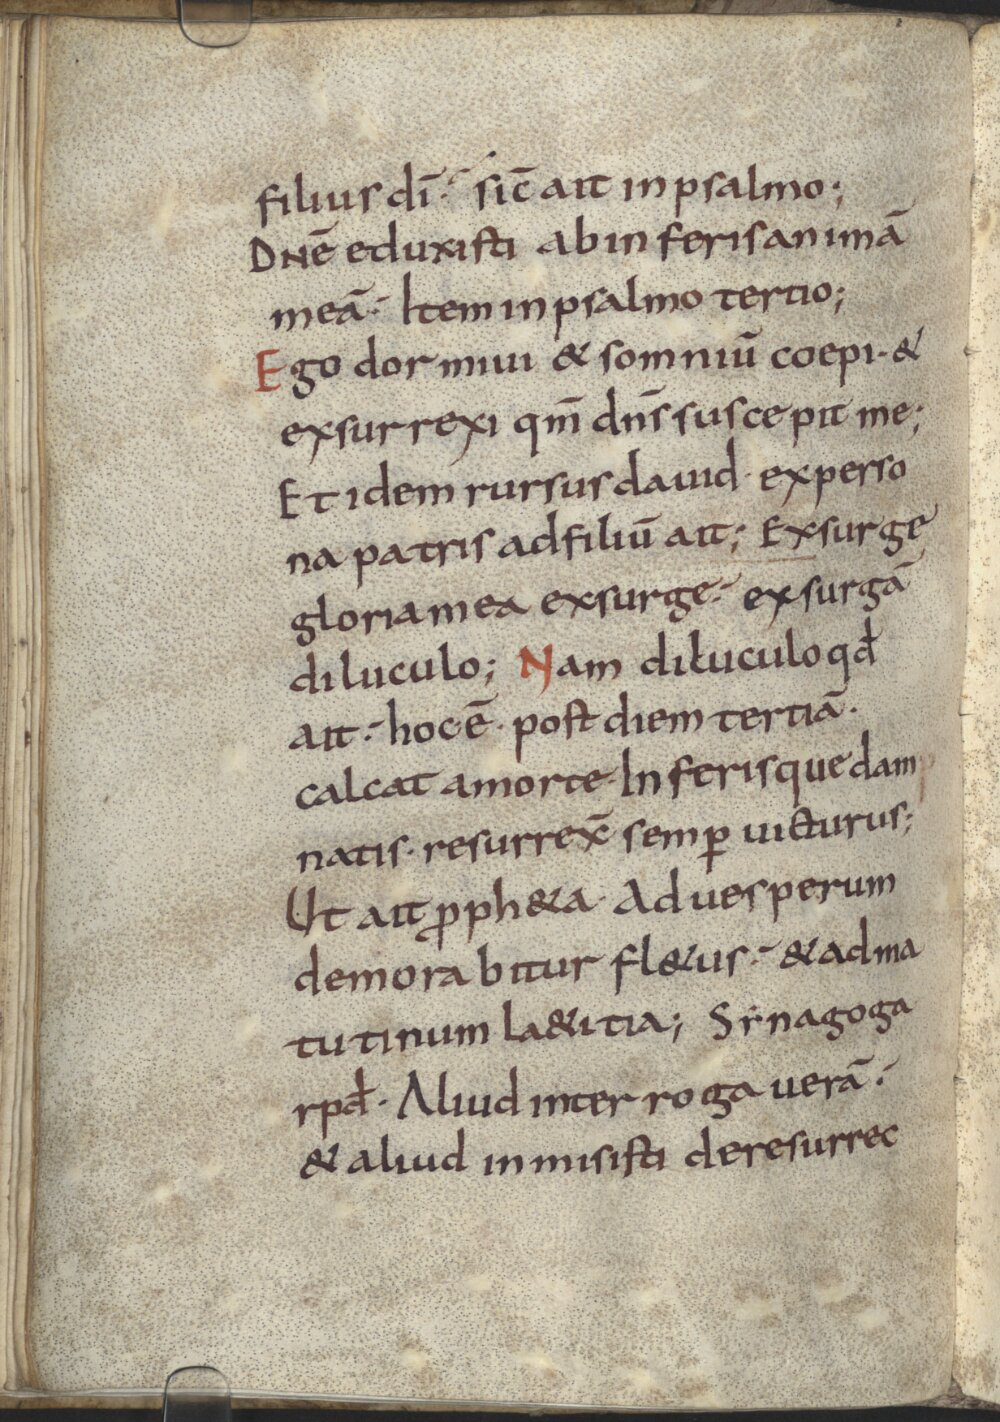 filius dī· sic̄ ait in psalmo;
Dnē eduxisti ab inferis animā
meā· Item in psalmo tertio;
Ego dormiui & somniū coepi· &
exsurrexi qm̄ dn̄s suscepit me;
Et idem rursus dauid· ex perso
na patris ad filiū ait; Exsurge
gloria mea exsurge· exsurgā
diluculo; Nam diluculo qđ
ait· hoc ē· post diem tertiā·
calcata morte· Inferisque dam
natis· resurrex̄ semꝑ uicturus;
Ut ait ꝓph&a· Ad uesperum
demorabitur fl&us· & ad ma
tutinum la&itia; Synagoga
rpđ· Aliud interrogauerā·
& aliud inmisisti de resurrec